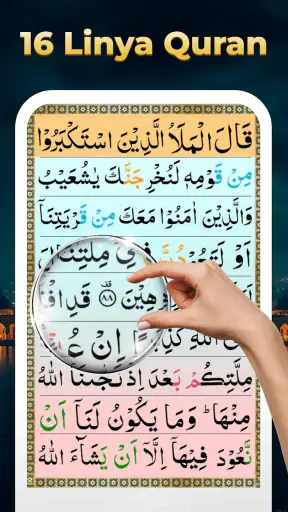 16 Linya Quran
قَالَ الْمَلَاُ الَّذِيْنَ اسْتَكْبَرُوْا
مِنْ قَوْمِهٖ لَنُخْرِجَنَّكَ يٰشُعَيْبُ
وَالَّذِيْنَ اٰمَنُوْا مَعَكَ مِنْ قَرْيَتِنَاۤ
اَوْ لَتَعُوْدُنَّ فِيْ مِلَّتِنَا
هِيْنَ ۝٨٨ قَدِ افْ
اللّٰهِ كَذِبًا اِنْ عُ
مِلَّتِكُمْ بَعْدَ اِذْ نَجّٰىنَا اللّٰهُ
مِنْهَا ؕ وَمَا يَكُوْنُ لَنَاۤ اَنْ
نَّعُوْدَ فِيْهَاۤ اِلَّاۤ اَنْ يَّشَآءَ اللّٰهُ